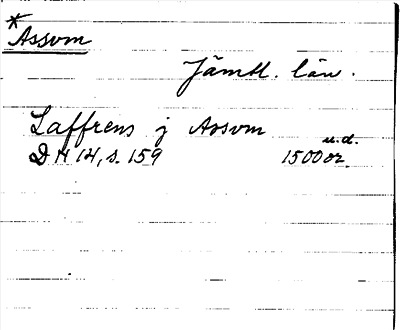 * Assvm
Jämtl. län.
Laffrens j Assvm
u.d.
DN 14, s. 159 1500